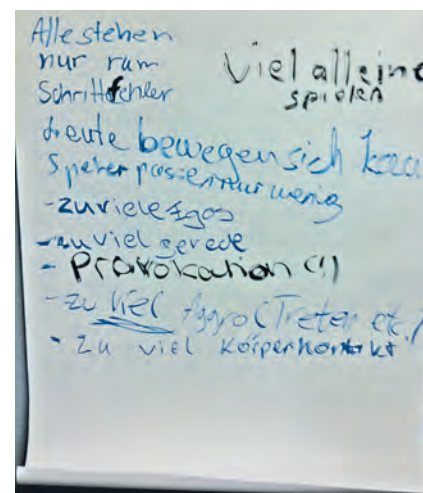 Alle stehen
nur rum
Schrittfehler
Viel alleine
spielen
Leute bewegen sich kau
Speler passen nur wenig
- zuviele Egos
- zu viel gerede
- Provokation (!)
- zu viel Aggro (Treter etc.)
- Zu viel Körperkontakt